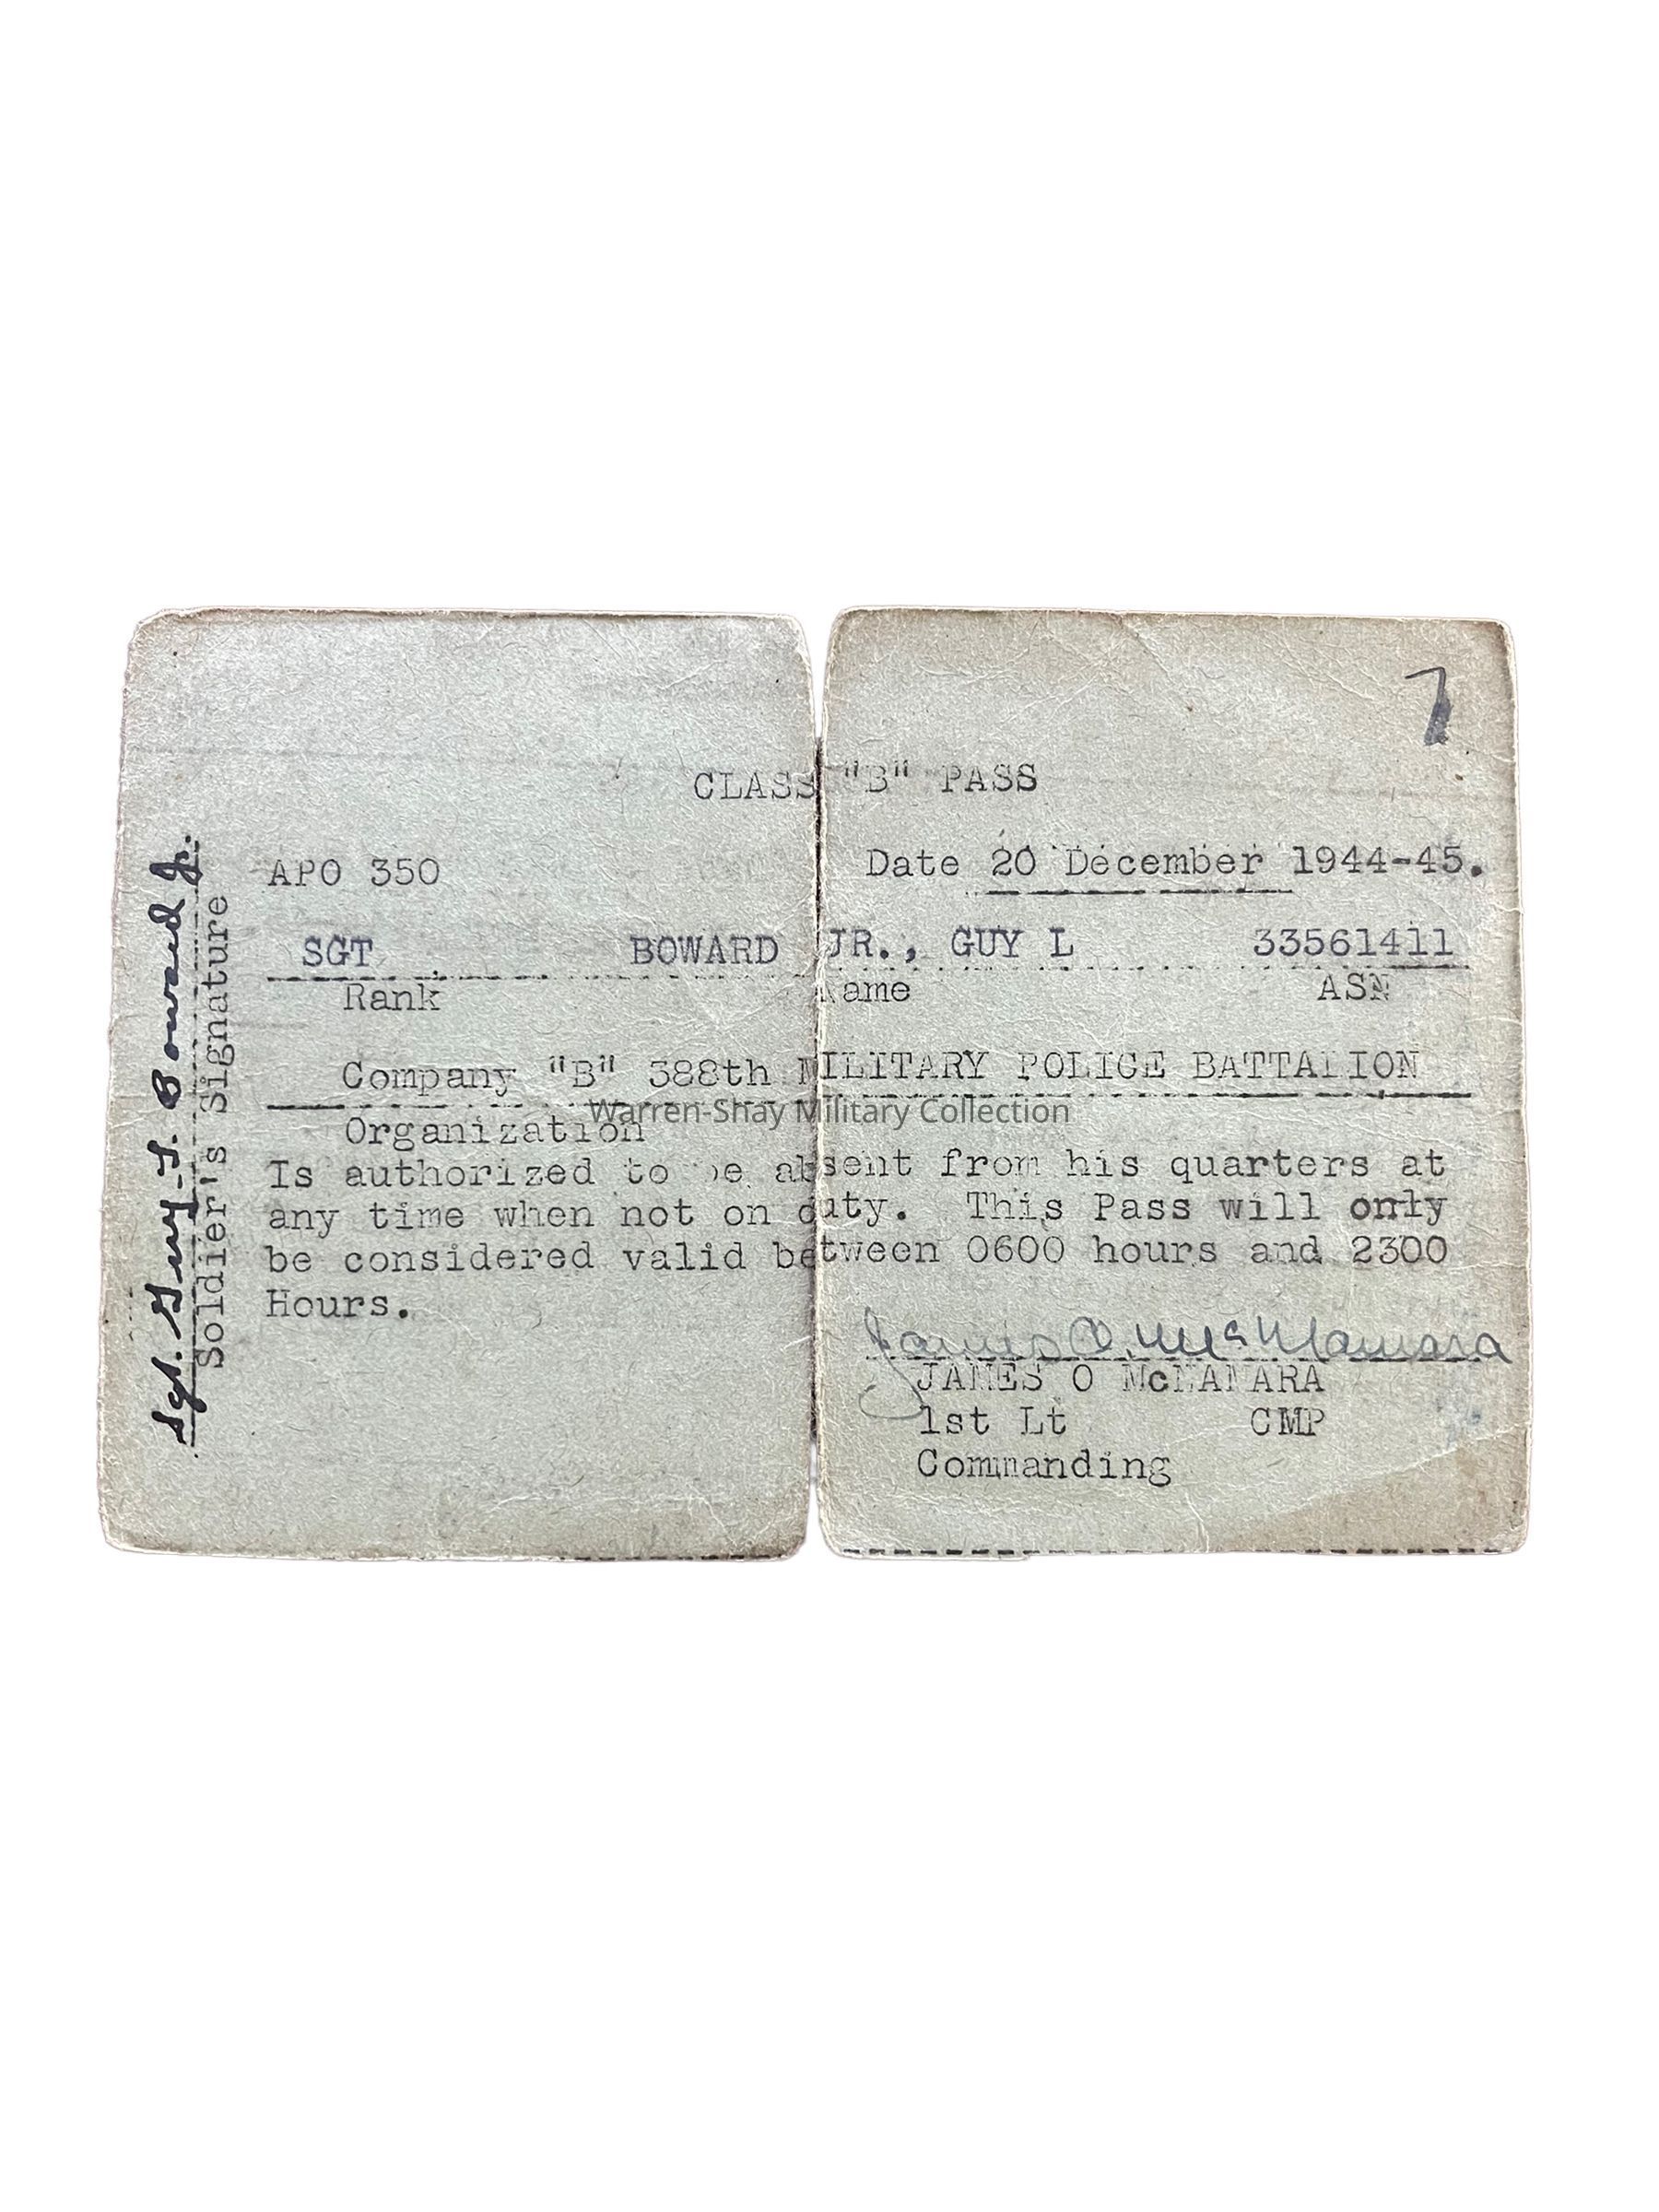 7
CLASS "B" PASS
APO 350 Date 20 December 1944-45.
SGT BOWARD JR., GUY L 33561411
Rank Name ASN
Company "B" 388th MILITARY POLICE BATTALION
Warren-Shay Military Collection
Organization
Is authorized to be absent from his quarters at
any time when not on duty. This Pass will only
be considered valid between 0600 hours and 2300
Hours.
James O. McNamara
JAMES O McNAMARA
1st Lt CMP
Commanding
Sgt. Guy L. Boward Jr.
Soldier's Signature